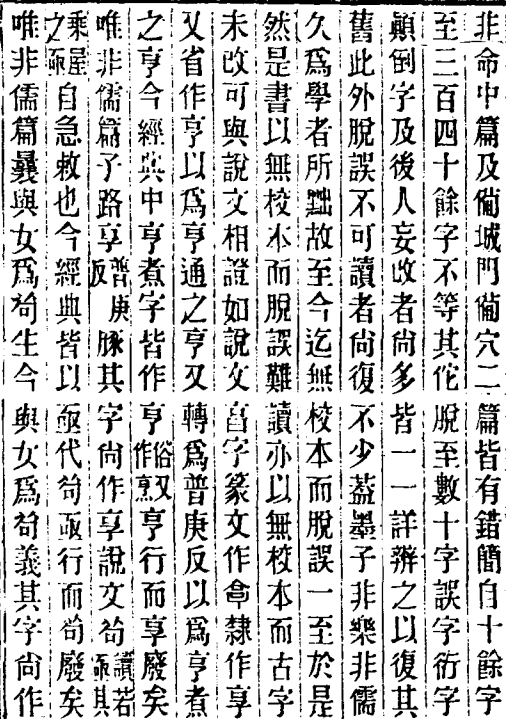 非命中篇及僃城門僃穴二篇皆有錯簡自十餘字
至三百四十餘字不等其佗脫至數十字誤字衍字
顚倒字及後人妄改者尙多皆一一詳辨之以復其
舊此外脫誤不可讀者尙復不少葢墨子非樂非儒
久爲學者所黜故至今迄無校本而脫誤一至於是
然是書以無校本而脫誤難讀亦以無校本而古字
未改可與說文相證如說文亯字篆文作𠅠隸作享
又省作亨以爲亨通之亨又轉爲普庚反以爲亨煮
之亨今經典中亨煮字皆作亨俗又作烹亨行而享廢矣
唯非儒篇子路享普庚反豚其字尙作享說文茍讀若亟其
乘屋之亟自急敕也今經典皆以亟代茍亟行而茍廢矣
唯非儒篇曩與女爲茍生今與女爲茍義其字尙作